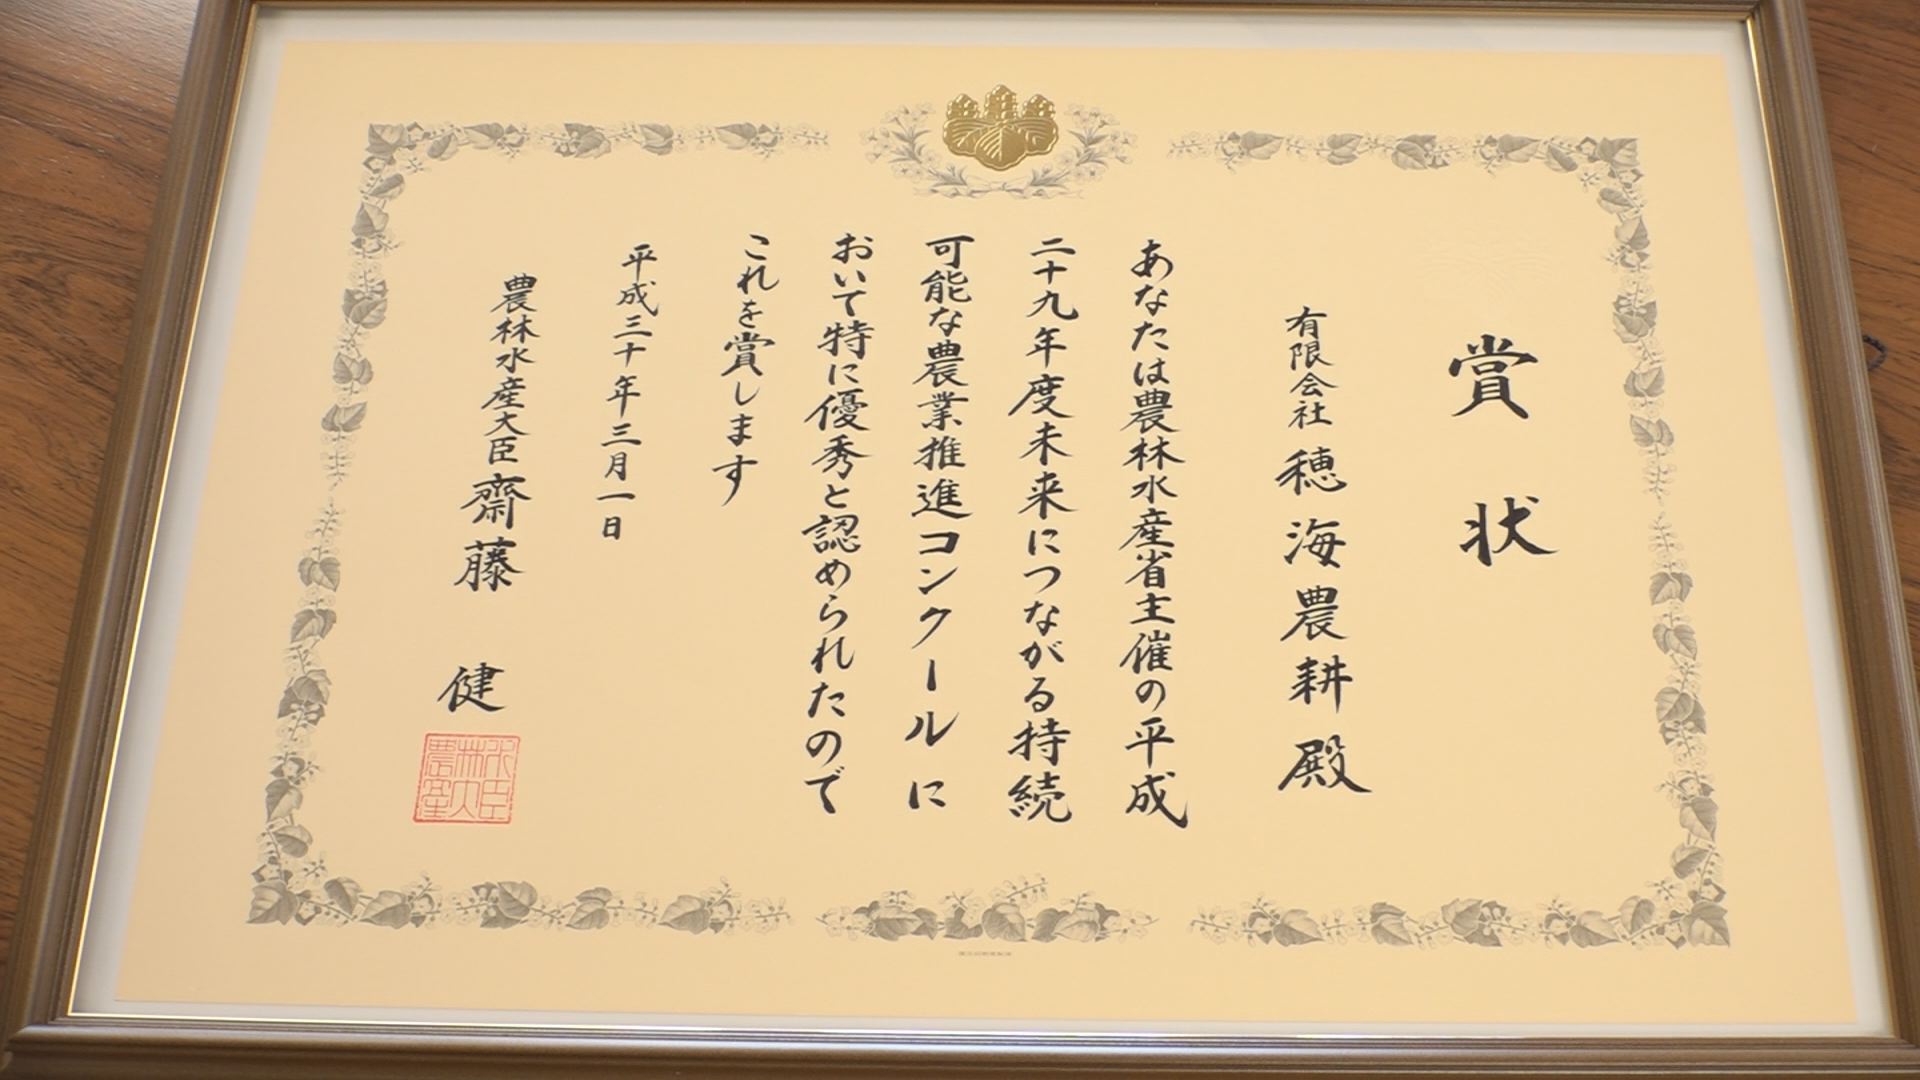 賞状
有限会社 穂海農耕 殿
あなたは農林水産省主催の平成
二十九年度未来につながる持続
可能な農業推進コンクールに
おいて特に優秀と認められたので
これを賞します
平成三十年三月一日
農林水産大臣 齋藤 健